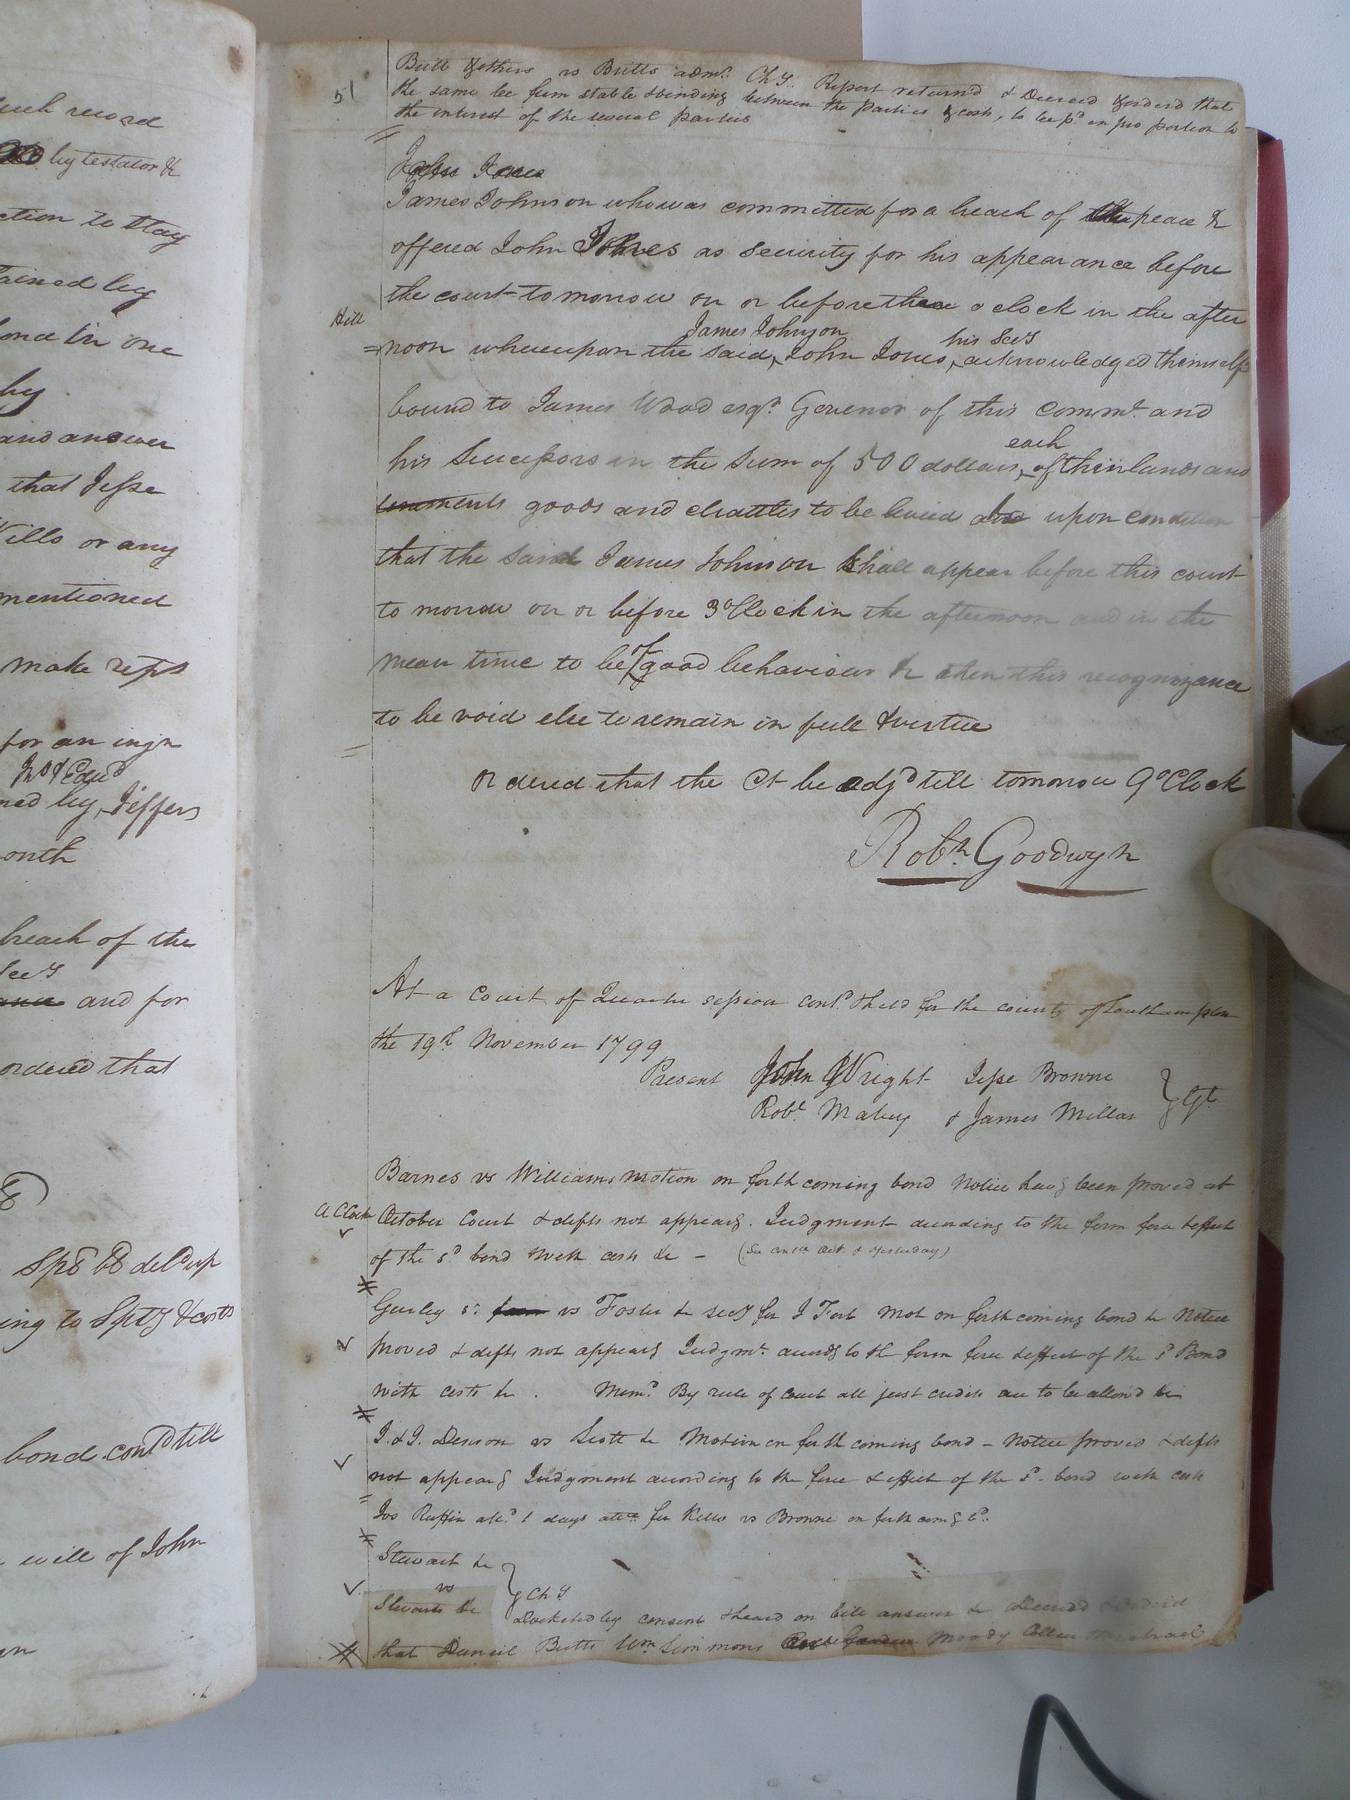 51
Butts & others vs Butts adm.r Ch.y Report return'd & Decreed & orderd that
the same be firm stable & binding between the parties & costs, to be p.d in pro portion to
the interest of the several parties
James Johnson who was committed for a breach of the peace &
offered John Jones as security for his appearance before
the court tomorrow on or before three o clock in the after
noon whereupon the said James Johnson John Jones his Secy acknowledged themselfs
bound to James Wood esq.r Govenor of this Comm.t and
his Successors in the sum of 500 dollars each of their lands and
tenements goods and chattles to be levied upon condition
that the said James Johnson shall appear before this court
to morrow on or before 3 oClock in the afternoon and in the
mean time to be of good behaviour & then this recognizance
to be void else to remain in full & virtue
Ordered that the Ct be adj.d till tomorrow 9 oClock
Rob.t Goodwyn
At a Court of Quarter session cont.d & held for the county of Southampton
the 19.th November 1799
Present John Wright Jesse Browne
Rob.t Mabry & James Millar } Gt
Barnes vs Williams motion on forth coming bond Notice hav.g been proved at
October Court & defts not appear.g Judgment according to the form force & effect
of the s.d bond with costs &c –
Gurley vs Foster & secy for J Fort mot on forth coming bond & Notice
proved & defts not appear.g Judgm.t accord.g to the form force & effect of the s.d Bond
with costs &c . Mem.o By rule of court all just credits are to be allow'd
J. & J. Denson vs Scott &c Motion on forth coming bond – Notice proved & defts
not appear.g Judgment according to the force & effect of the s.d bond with costs
Jos Ruffin att.d days for Kello vs Browne on forth com.g b.d
Stewart &c
vs
Stewarts &c } Ch.y
Docketed by consent & heard on bill answer & Decreed & orderd
that Daniel Butts Wm Simmons Moody
Hill
such record
by testator &
ction to stay
tained by
bond in one
by
and answer
that Jesse
Wills or any
mentioned
make rept
for an injn
ned by Jeffers
onth
breach of the
Secy
and for
ordered that
bond cont.d till
will of John